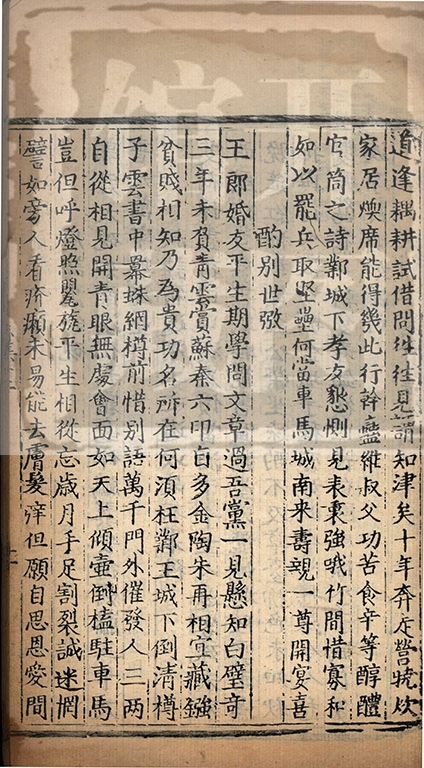 道逢耦耕試借問往往見謂知津矣十年奔走營曉炊
家居煖席能得幾此行幹蠱維叔父功苦食辛等醇醴
官筒之詩鄴城下孝友懇惻見表裏強哦竹間借寡和
如以罷兵取堅壘何當車馬城南来壽親一尊開宴喜
酌別世弢
王郎婚友平生期學問文章過吾黨一見懸知白璧奇
三年未賀青雲賞蘇秦六印自多金陶朱再相宜藏鏹
貧賤相知乃為貴功名所在何須枉鄴王城下倒清樽
子雲書中暴蛛網樽前惜別語萬千門外催發人三兩
自從相見開青眼無處會面如天上傾壷倒榼駐車馬
豈但呼燈照罌旒平生相從忘歲月手足割裂誠迷惘
譬如旁人看疥癩未易能去膚髮痒但願自思恩愛間